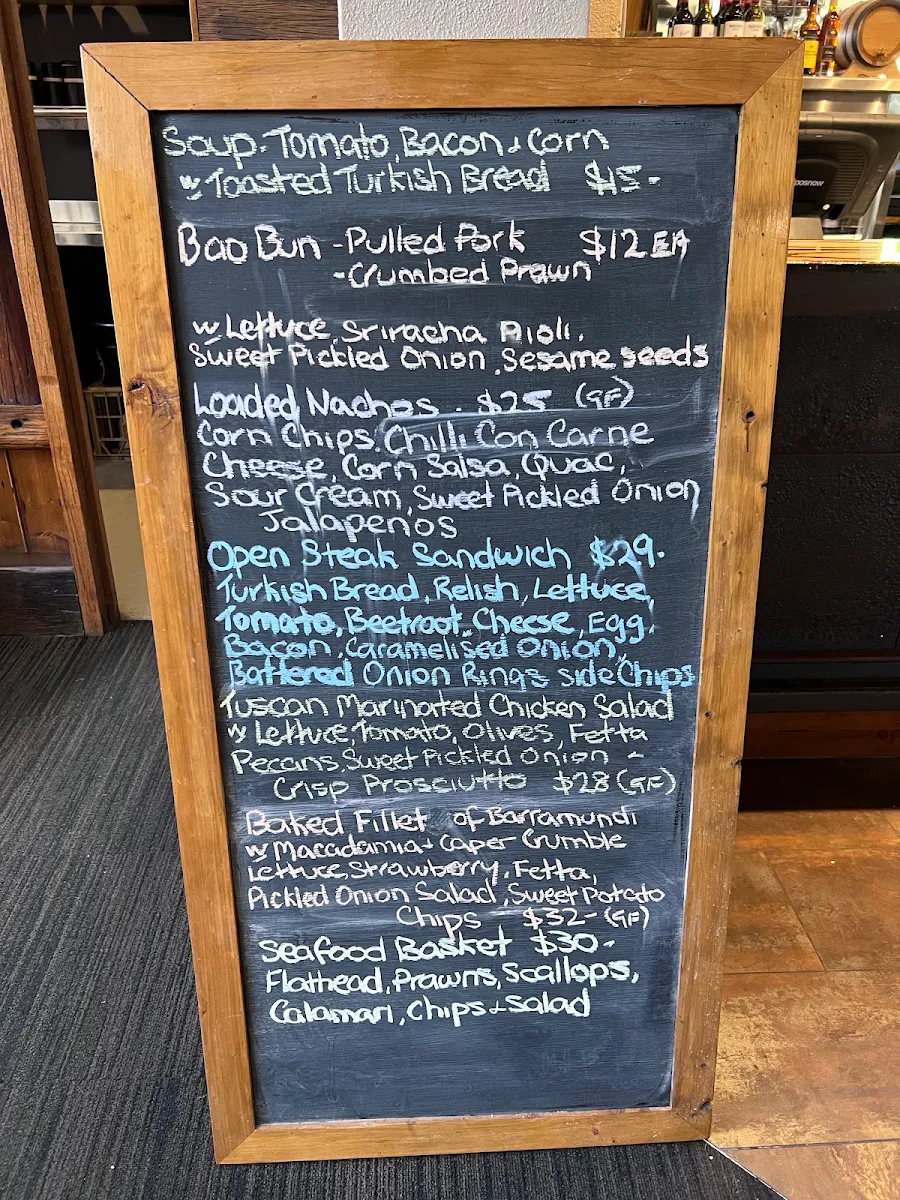 Soup. Tomato, Bacon + Corn
w Toasted Turkish Bread $15-
Bao Bun - Pulled Pork $12 EA
- Crumbed Prawn
w Lettuce, Sriracha Aioli,
Sweet Pickled Onion, Sesame seeds
Loaded Nachos - $25 (GF)
Corn Chips, Chilli Con Carne
Cheese, Corn Salsa, Quac,
Sour Cream, Sweet Pickled Onion
Jalapenos
Open Steak Sandwich $29-
Turkish Bread, Relish, Lettuce,
Tomato, Beetroot, Cheese, Egg,
Bacon, Caramelised Onion,
Battered Onion Rings side Chips
Tuscan Marinarted Chicken Salad
w Lettuce, Tomato, Olives, Fetta
Pecans, Sweet Pickled Onion -
Crisp Prosciutto $28 (GF)
Baked Fillet of Barramundi
w Macadamia + Caper Crumble
Lettuce, Strawberry, Fetta,
Pickled Onion Salad, Sweet Potato
Chips $32- (GF)
Seafood Basket $30-
Flathead, Prawns, Scallops,
Calamari, Chips + Salad
posnow